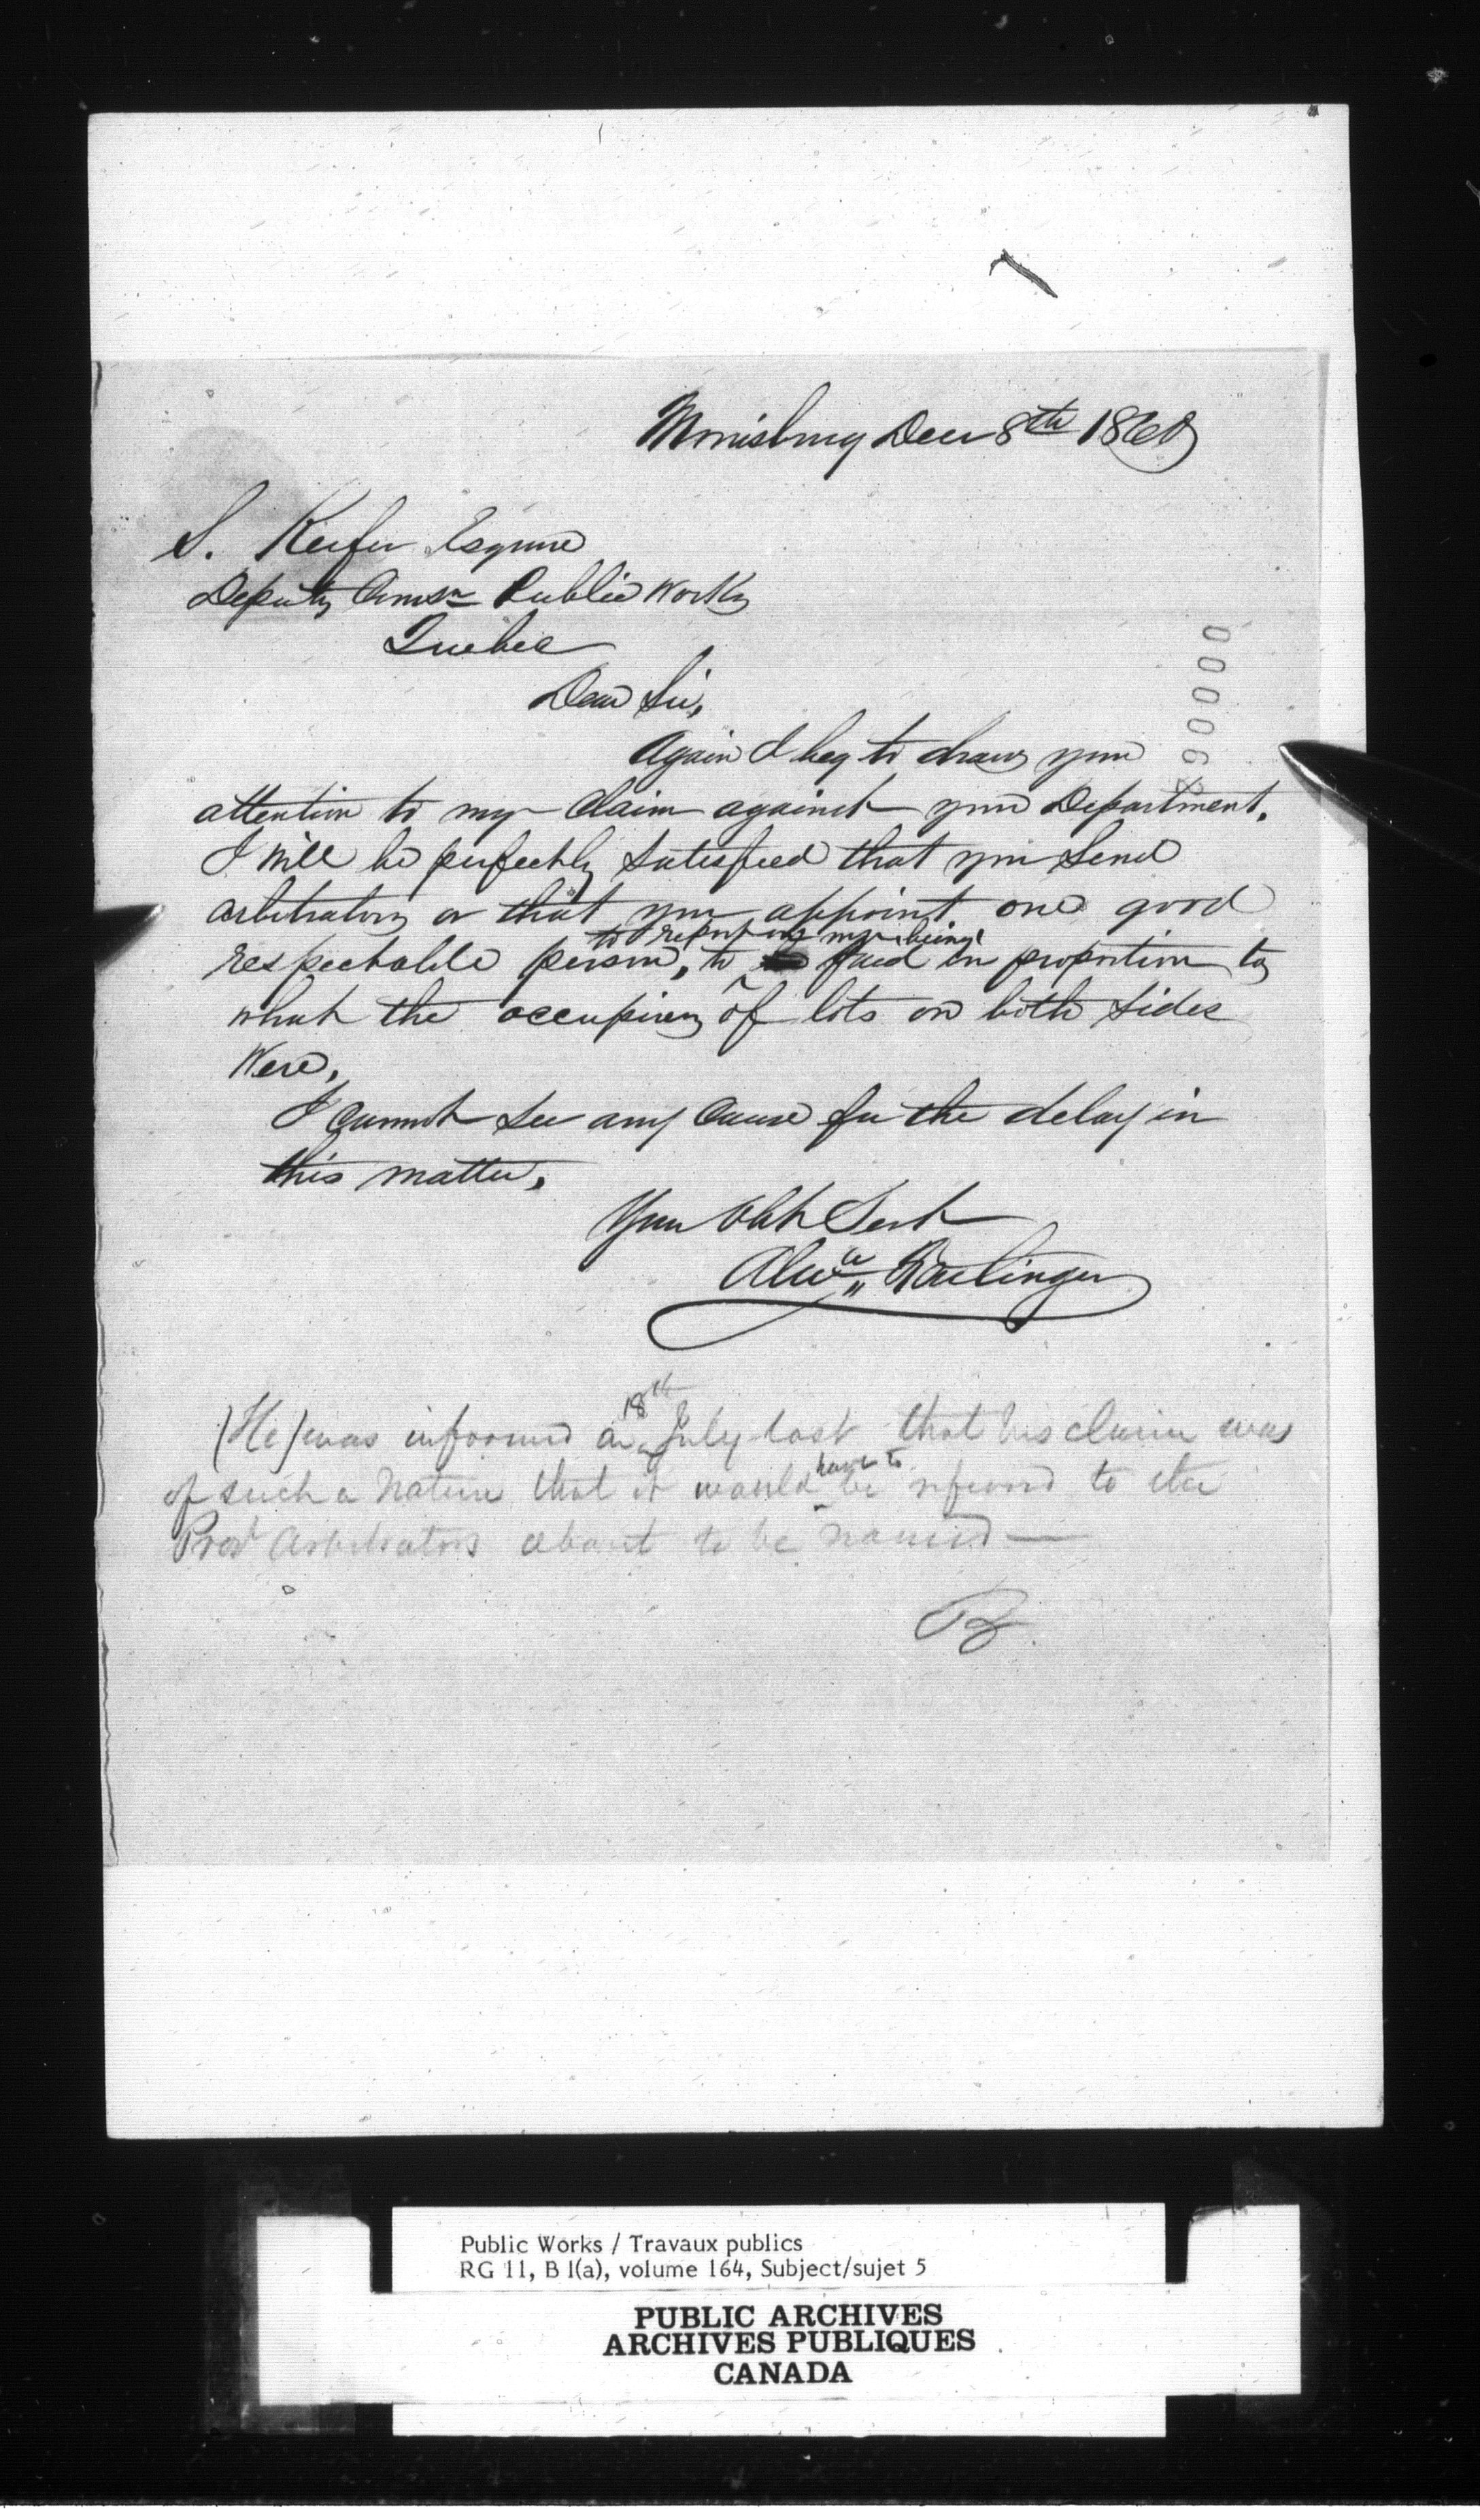 Morrisburg Decr 8th 1860
S. Keefer Esquire
Deputy Comsr Public Works
Quebec
Dear Sir,
Again I beg to draw your
attention to my claim against your Department.
I will be perfectly satisfied that you send
arbitrators or that you appoint one good
to report on my being
respectable person, to paid in proportion to
what the occupiers of lots on both sides
were,
I cannot see any cause for the delay in
this matter,
Your Obt Servt
18th
(He) was informed on July last that his claim was
have to
of such a nature that it would be referred to the
Provl Arbitrators about to be named —
000062
Public Works / Travaux publics
RG 11, B 1(a), volume 164, Subject/sujet 5
PUBLIC ARCHIVES
ARCHIVES PUBLIQUES
CANADA